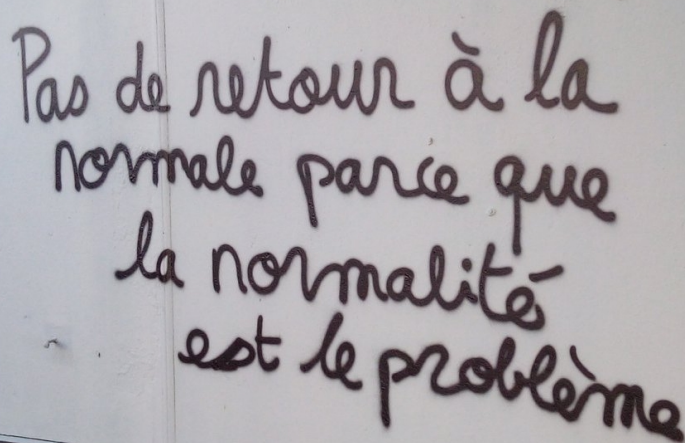 Pas de retour à la
normale parce que
la normalité
est le problème